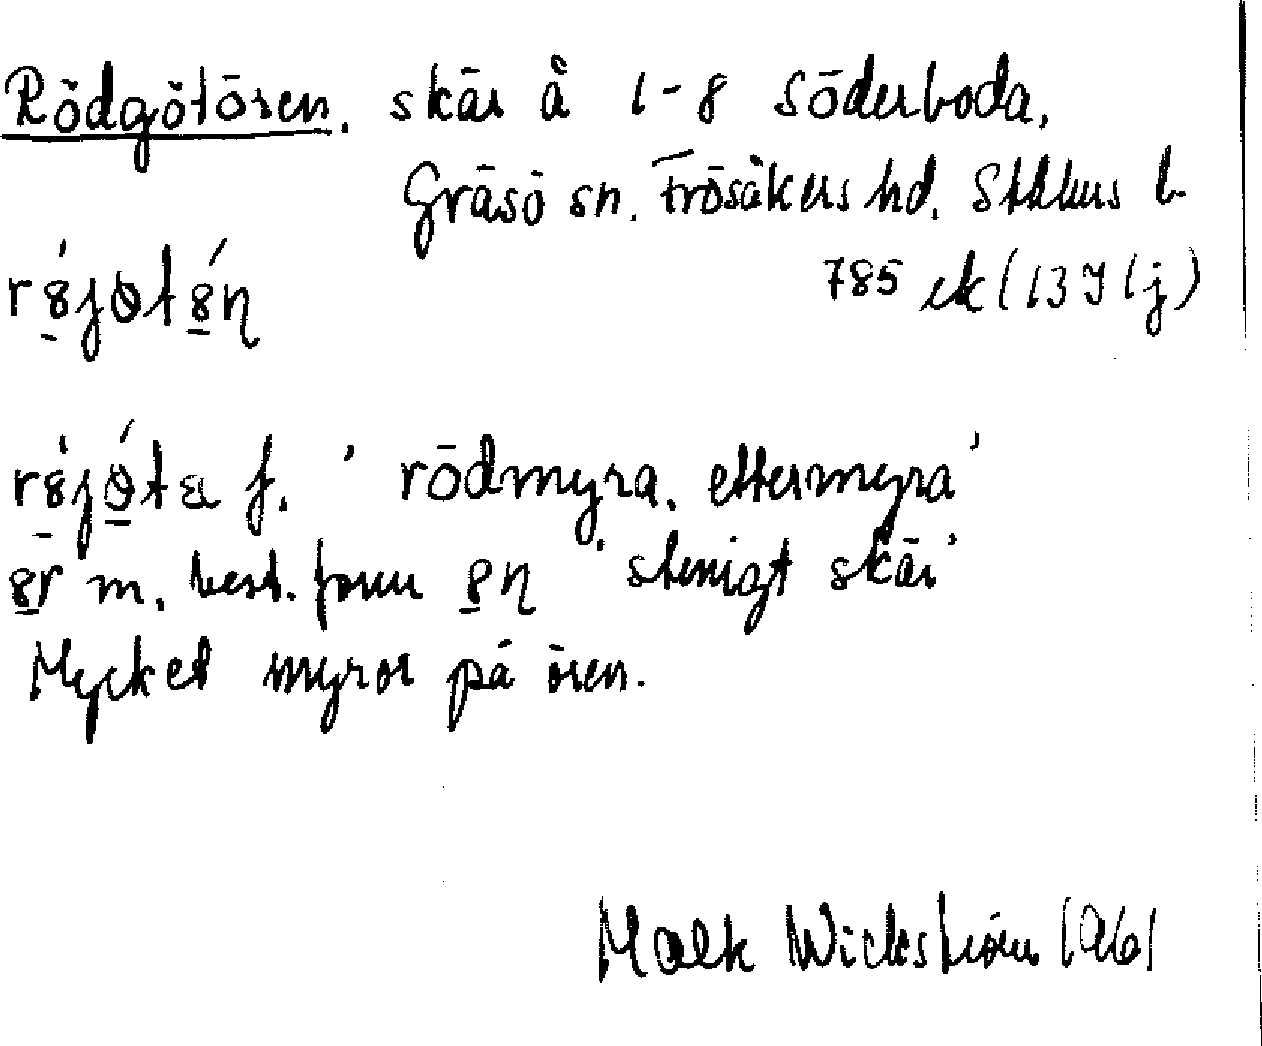 Rödgötören. skär å 1-8 Söderboda,
Gräsö sn. Frösåkers hd. Sthlms l.
785 ek (13 I 1j)
rödmyra, ettermyra'
m. best. form 'stenigt skär'
Mycket myror på ören.
Maek Wickström 1961